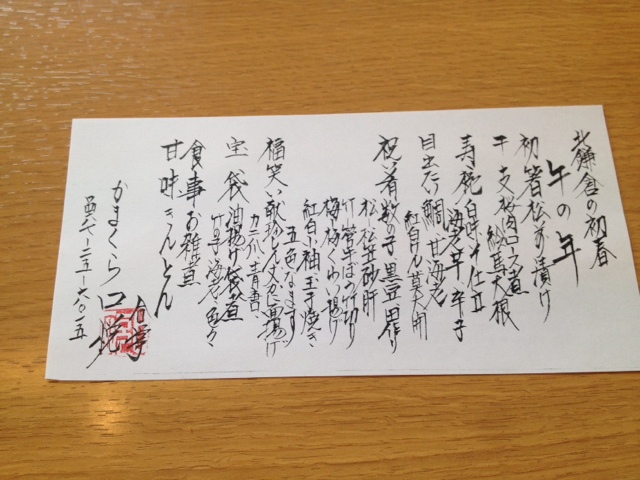 北鎌倉の初春
午の年
初箸 松前漬け
干支 桜肉ロース煮
絵馬大根
寿椀 白味噌仕立
海老芋 辛子
目出たり 鯛 甘海老
紅白けん
祝肴 数の子 黒豆 田作り
松 松笠砂肝
竹 管牛ぼう
梅 梅くわい揚げ
紅白小袖玉子焼き
五色なます
福笑い
カニ 青唐
宝袋 油揚げ袋煮
竹の子 海老 色々
食事 お雑煮
甘味 きんとん
かまくら 口悦
合掌
四六七ー二五ー六〇二五